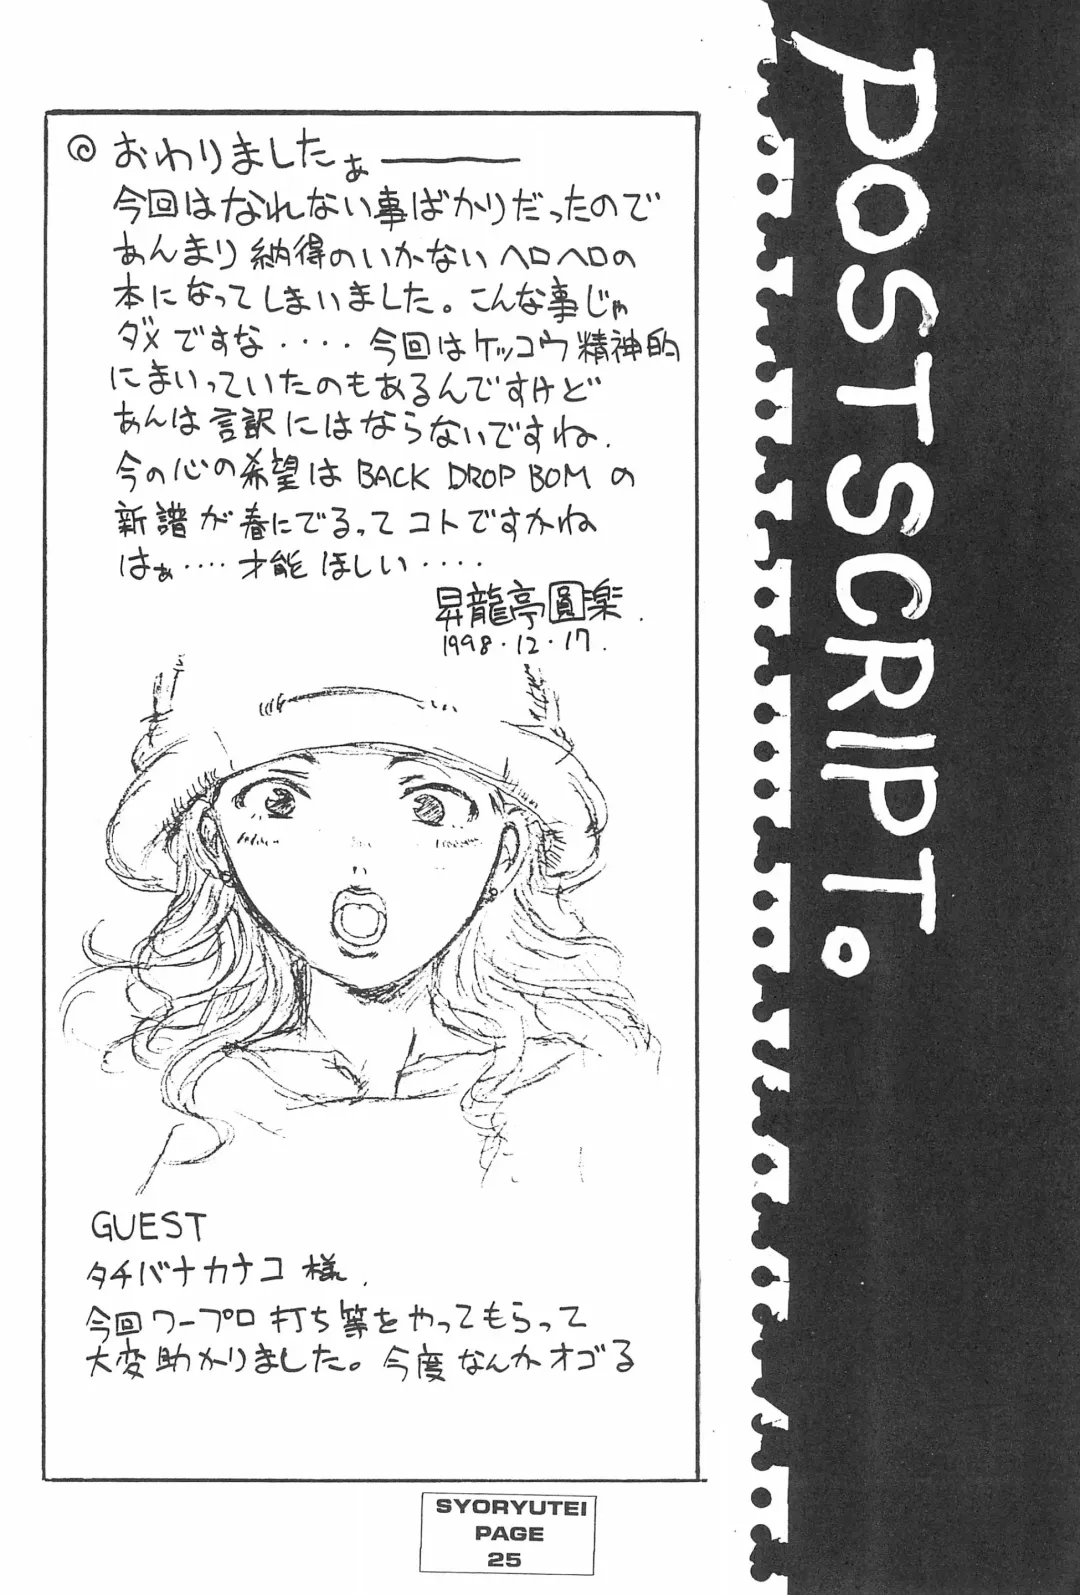 POSTSCRIPT。
◎ おわりましたぁ――――
今回はなれない事ばかりだったので
あんまり納得のいかないヘロヘロの
本になってしまいました。こんな事じゃ
ダメですな・・・・今回はケッコウ精神的
にまいっていたのもあるんですけど
あんは言訳にはならないですね.
今の心の希望は BACK DROP BOM の
新譜が春にでるってコトですかね
はぁ・・・・才能ほしい・・・・
昇龍亭圓楽.
1998・12・17.
GUEST
タチバナカナコ様.
今回ワープロ打ち等をやってもらって
大変助かりました。今度なんかオゴる
SYORYUTEI
PAGE
25